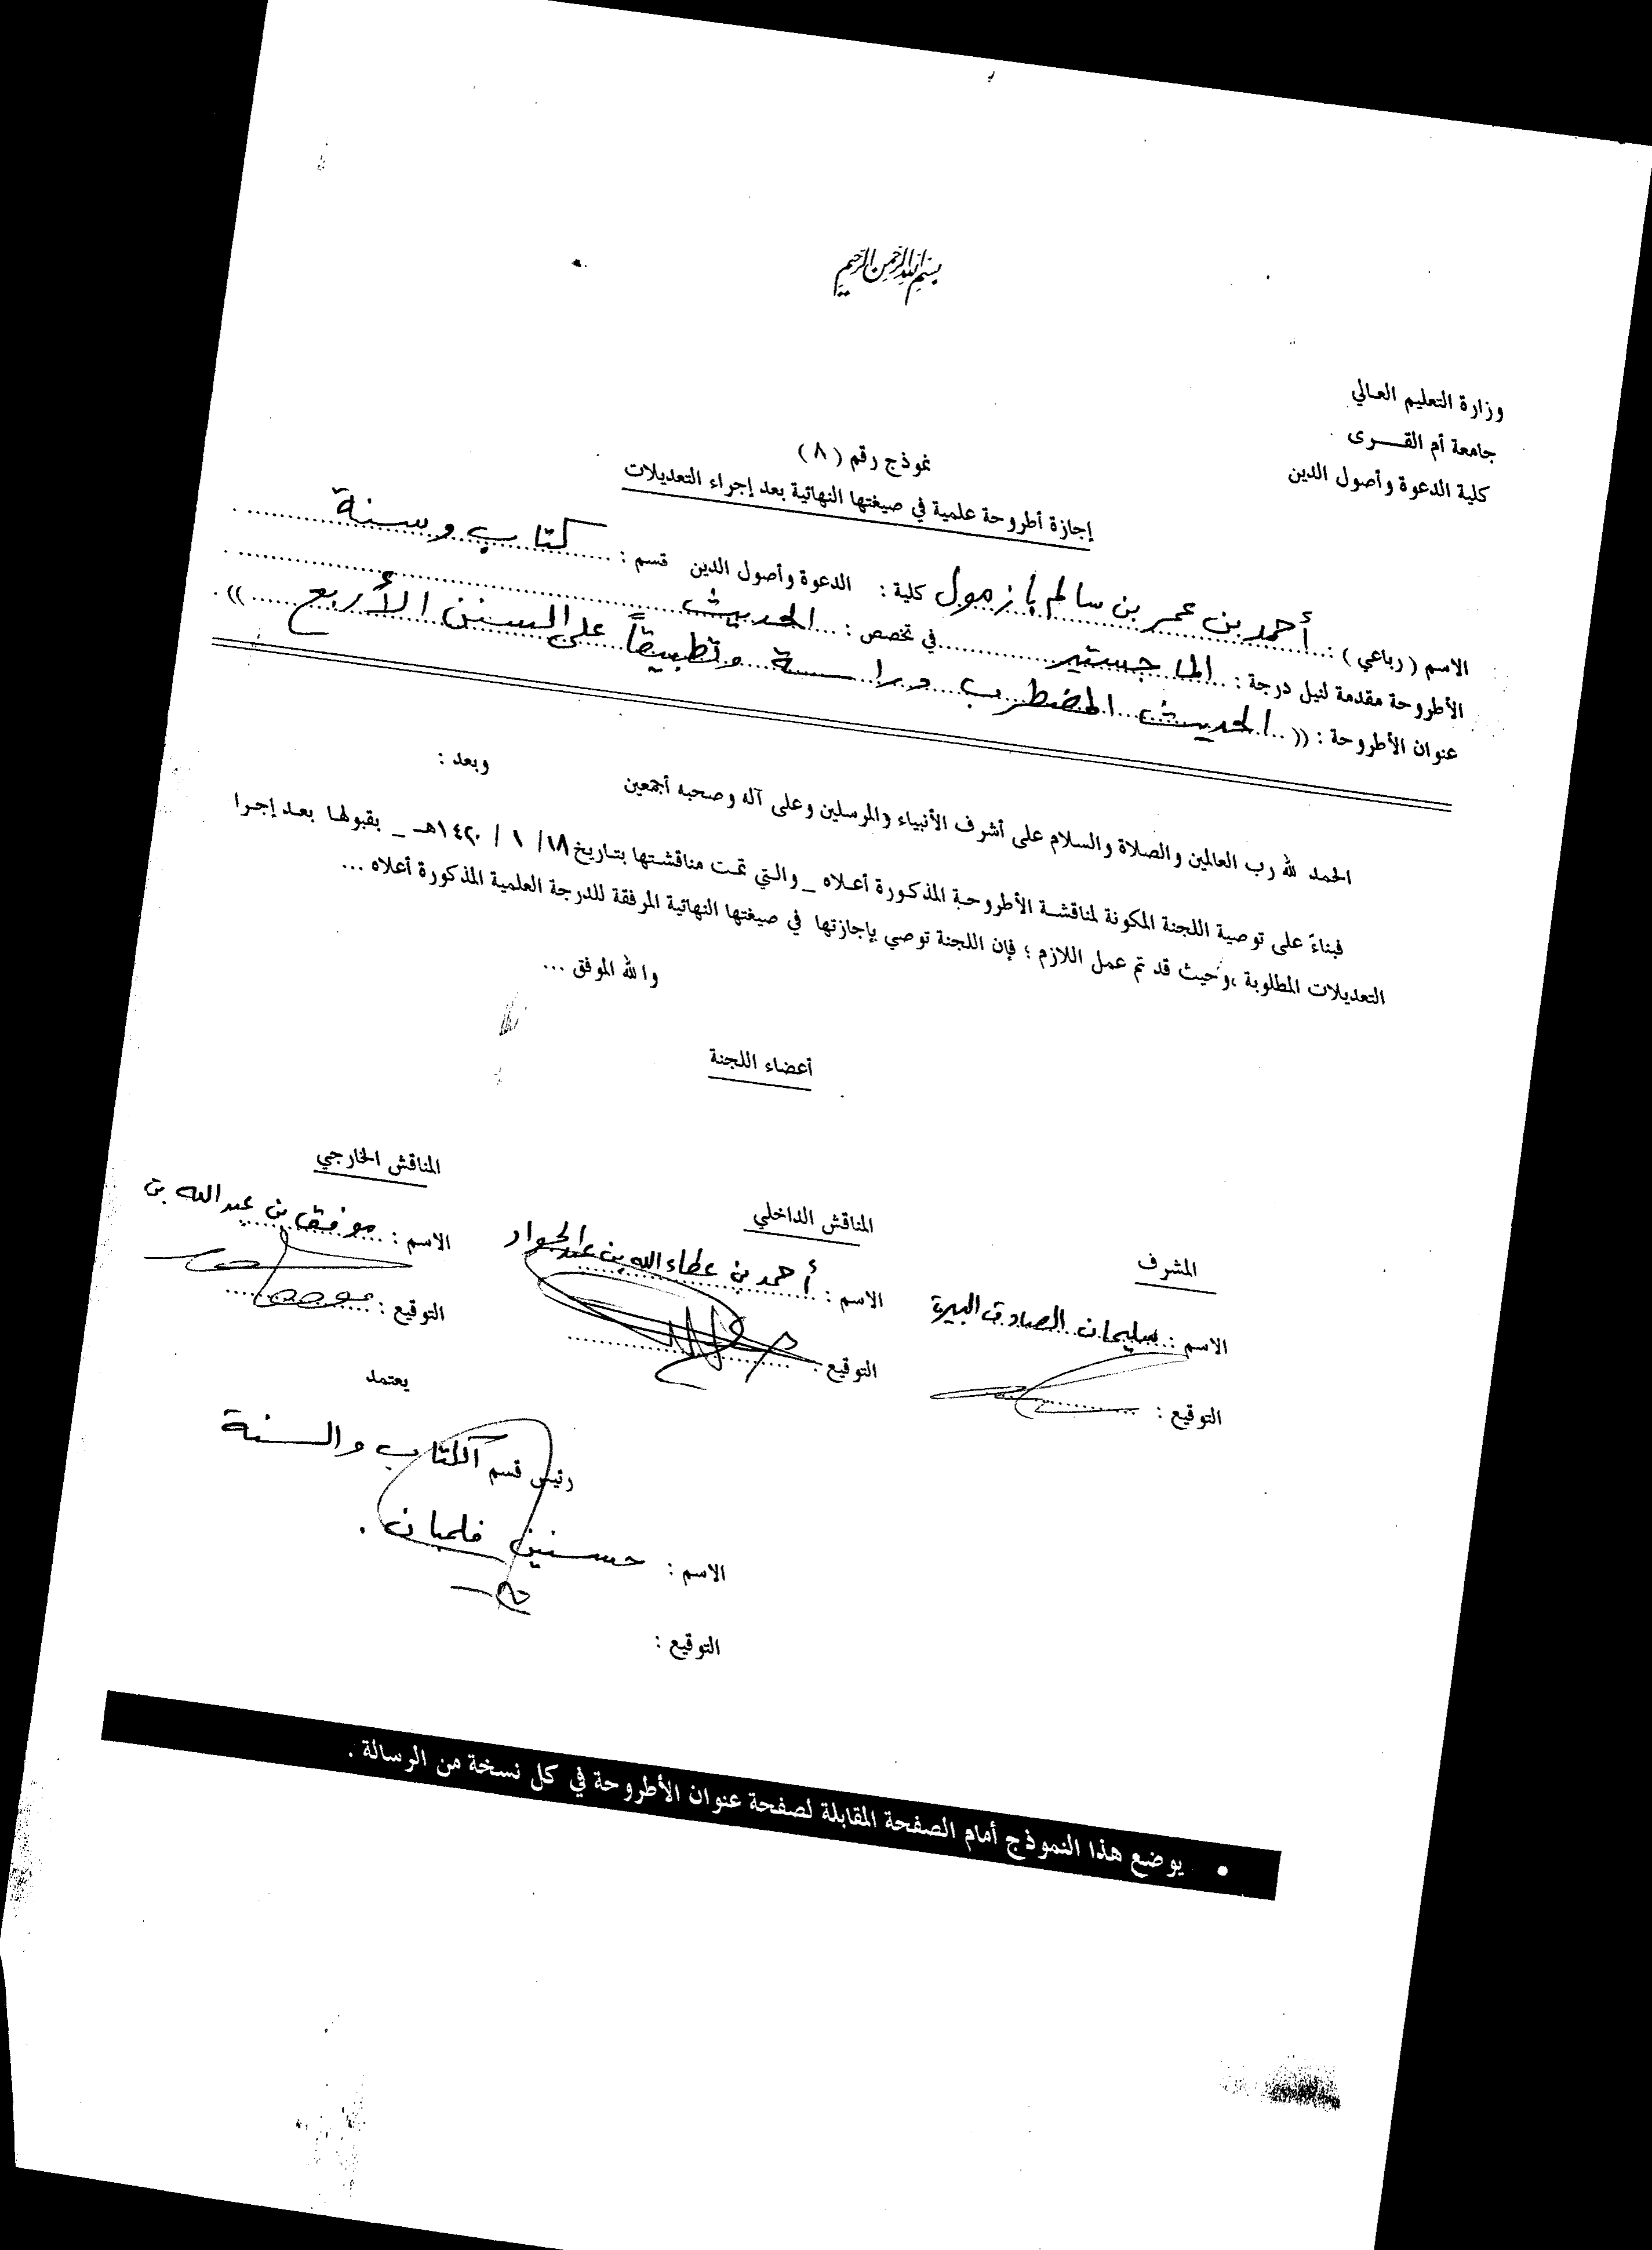 بسم الله الرحمن الرحيم
وزارة التعليم العالي
جامعة أم القـــرى
كلية الدعوة وأصول الدين
نموذج رقم ( ٨ )
إجازة أطروحة علمية في صيغتها النهائية بعد إجراء التعديلات
الاسم ( رباعي ) : أحمد بن عمر بن سالم بازمول كلية : الدعوة وأصول الدين قسم : كتاب وسنة
الأطروحة مقدمة لنيل درجة : الماجستير في تخصص : الحديث
عنوان الأطروحة : (( الحديث المضطرب دراسة وتطبيقاً على السنن الأربع )) .
الحمد لله رب العالمين والصلاة والسلام على أشرف الأنبياء والمرسلين وعلى آله وصحبه أجمعين وبعد :
فبناءً على توصية اللجنة المكونة لمناقشة الأطروحة المذكورة أعلاه _ والتي تمت مناقشتها بتاريخ ١٨/ ١ / ١٤٢٠هـ _ بقبولها بعد إجرا
التعديلات المطلوبة ،وحيث قد تم عمل اللازم ؛ فإن اللجنة توصي بإجازتها في صيغتها النهائية المرفقة للدرجة العلمية المذكورة أعلاه ...
والله الموفق ...
أعضاء اللجنة
المشرف
الاسم : سليمان الصادق البيرة
التوقيع :
المناقش الداخلي
الاسم : أحمد بن عطاء الله بن عبد الجواد
التوقيع :
المناقش الخارجي
الاسم : موفق بن عبد الله بن
التوقيع :
يعتمد
رئيس قسم الكتاب والسنة
الاسم : حسنين فلمبان .
التوقيع :
• يوضع هذا النموذج أمام الصفحة المقابلة لصفحة عنوان الأطروحة في كل نسخة من الرسالة .